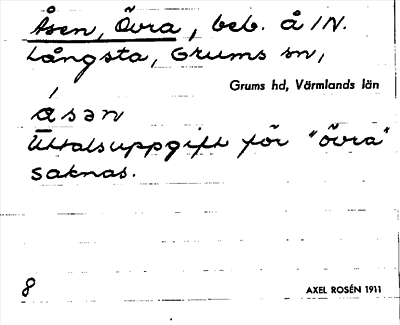 Åsen, Övra, beb. å /N.
Långsta, Grums sn,
Grums hd, Värmlands län
åsən
Uttalsuppgift för "övra"
saknas.
8
AXEL ROSÉN 1911